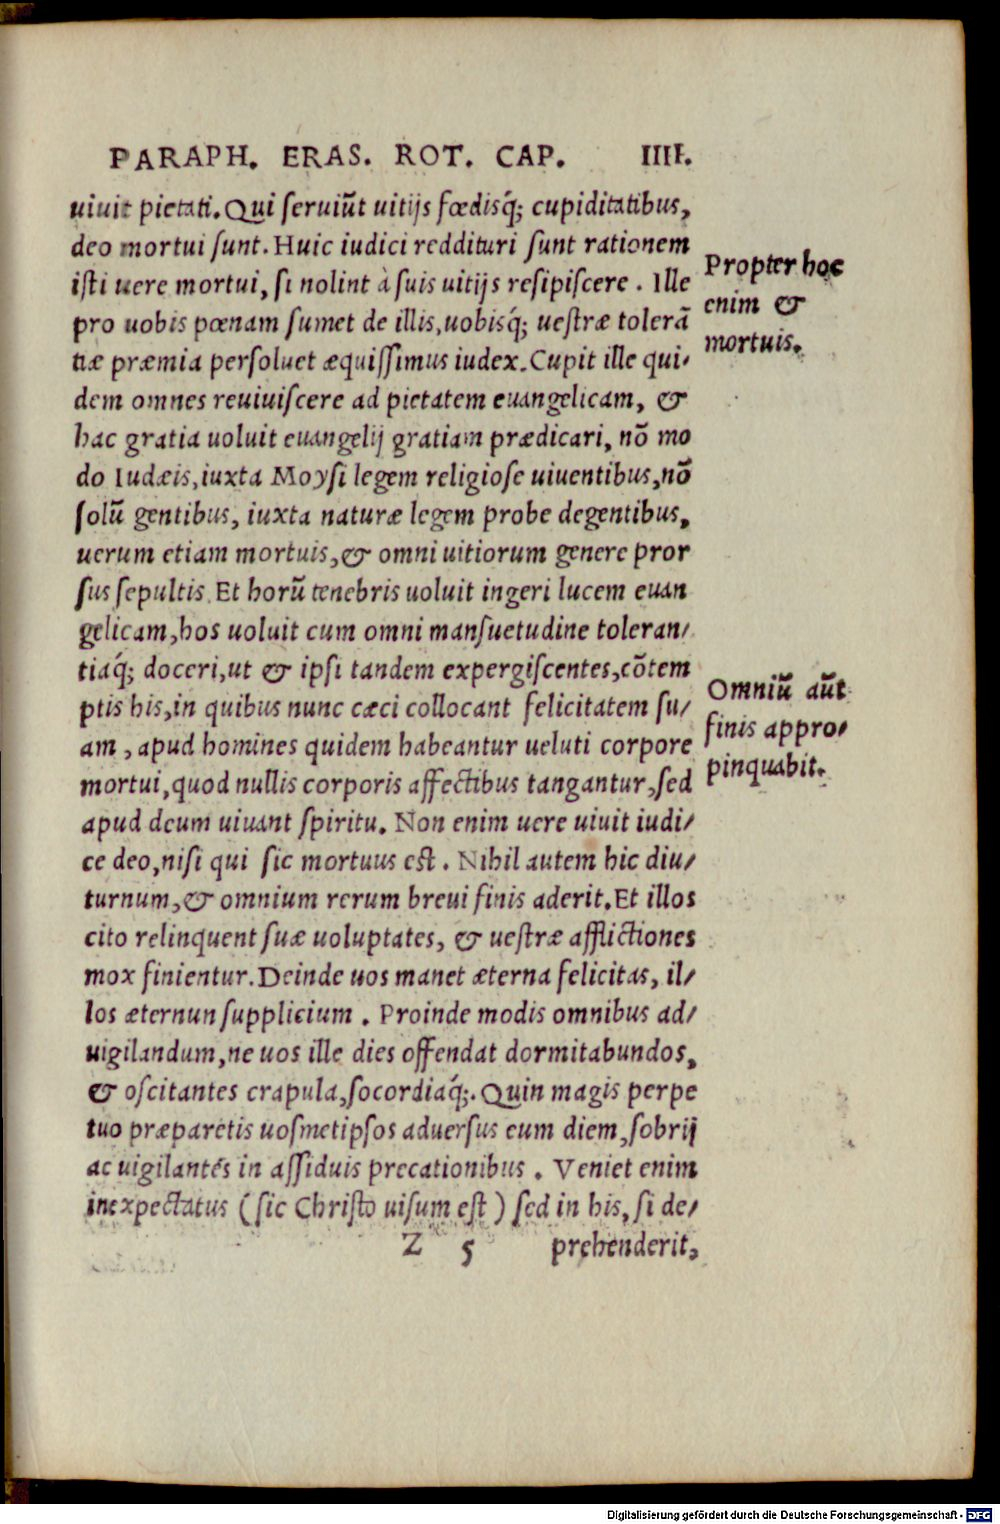 PARAPH. ERAS. ROT. CAP. IIII.
uiuit pietati. Qui seruiũt uitijs fœdisq́; cupiditatibus,
deo mortui sunt. Huic iudici reddituri sunt rationem
isti uere mortui, si nolint à suis uitijs resipiscere. Ille
pro uobis pœnam sumet de illis, uobisq́; uestræ tolerã
tiæ præmia persoluet æquissimus iudex. Cupit ille qui-
dem omnes reuiuiscere ad pietatem euangelicam, &
hac gratia uoluit euangelij gratiam prædicari, nõ mo
do Iudæis, iuxta Moysi legem religiose uiuentibus, nõ
solũ gentibus, iuxta naturæ legem probe degentibus,
uerum etiam mortuis, & omni uitiorum genere pror
sus sepultis. Et horũ tenebris uoluit ingeri lucem euan
gelicam, hos uoluit cum omni mansuetudine toleran-
tiaq́; doceri, ut & ipsi tandem expergiscentes, cõtem
ptis his, in quibus nunc cæci collocant felicitatem su-
am, apud homines quidem habeantur ueluti corpore
mortui, quod nullis corporis affectibus tangantur, sed
apud deum uiuant spiritu. Non enim uere uiuit iudi-
ce deo, nisi qui sic mortuus est. Nihil autem hic diu-
turnum, & omnium rerum breui finis aderit. Et illos
cito relinquent suæ uoluptates, & uestræ afflictiones
mox finientur. Deinde uos manet æterna felicitas, il-
los æternun supplicium. Proinde modis omnibus ad-
uigilandum, ne uos ille dies offendat dormitabundos,
& oscitantes crapula, socordiaq́;. Quin magis perpe
tuo præparetis uosmetipsos aduersus eum diem, sobrij
ac uigilantés in assiduis precationibus. Veniet enim
inexpectatus (sic Christo uisum est) sed in his, si de-
Z 5 prehenderit,
Propter hoc
enim &
mortuis.
Omniũ aũt
finis appro-
pinquabit.
Digitalisierung gefördert durch die Deutsche Forschungsgemeinschaft - DFG